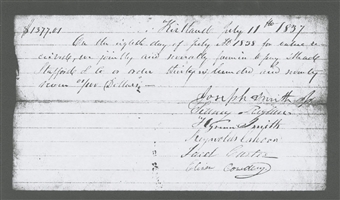 $1377.01 Kirtland July 11th 1837
On the eighth day of July AD 1838 for value re
ceived, we jointly and severally promise to pay
or order thirty hundred and seventy
seven dollars
Joseph Smith Jr
Sidney Rigdon
Hyrum Smith
Reynolds Cahoon
Jared Carter
Oliver Cowdery